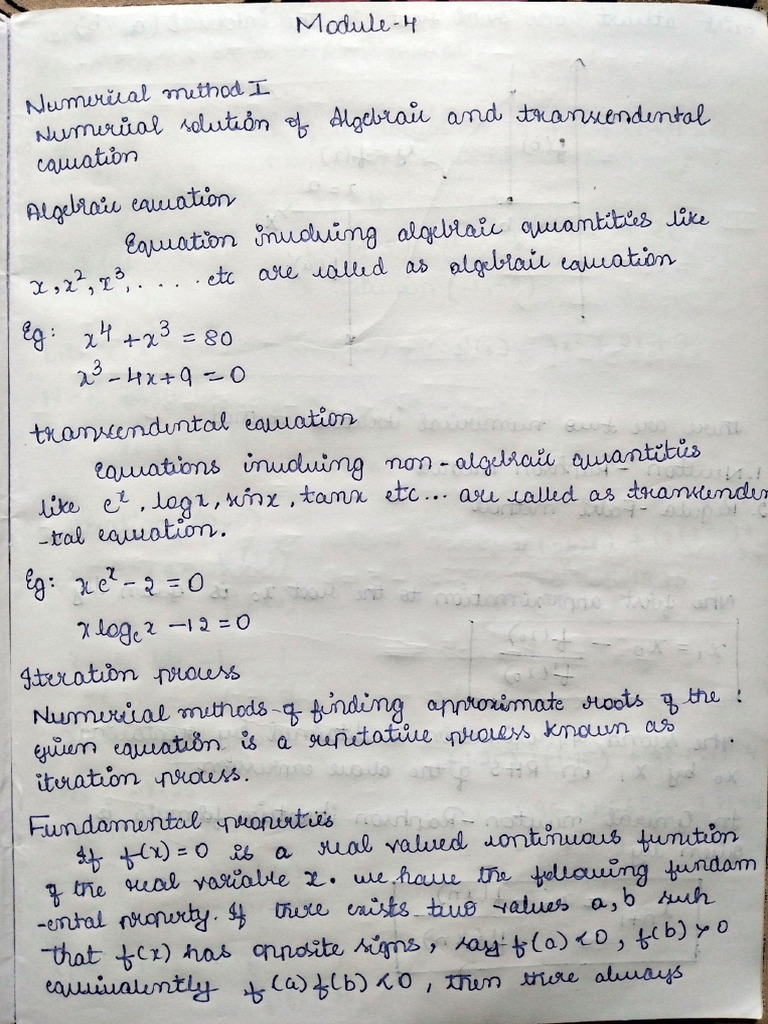 Module-4
Numerical method I
Numerical solution of Algebraic and transcendental
equation
Algebraic equation
Equation involving algebraic quantities like
x, x², x³, ..... etc are called as algebraic equation
Eg: x⁴ + x³ = 80
x³ - 4x + 9 = 0
transcendental equation
equations involving non-algebraic quantities
like eˣ, logx, sinx, tanx etc... are called as transcenden
-tal equation.
Eg: xeˣ - 2 = 0
x logₑ x - 12 = 0
Iteration process
Numerical methods of finding approximate roots of the
given equation is a repetative process known as
iteration process.
Fundamental properties
If f(x) = 0 is a real valued continuous function
of the real variable x. we have the following fundam
-ental property. If there exists two values a, b such
that f(x) has opposite signs, say f(a) < 0, f(b) > 0
equivalently f(a) f(b) < 0, then there always